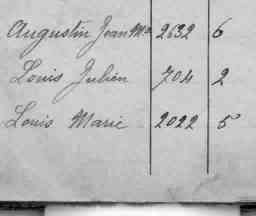 Augustin Jean Ma 2632 6
Louis Julien 704 2
Louis Marie 2022 5